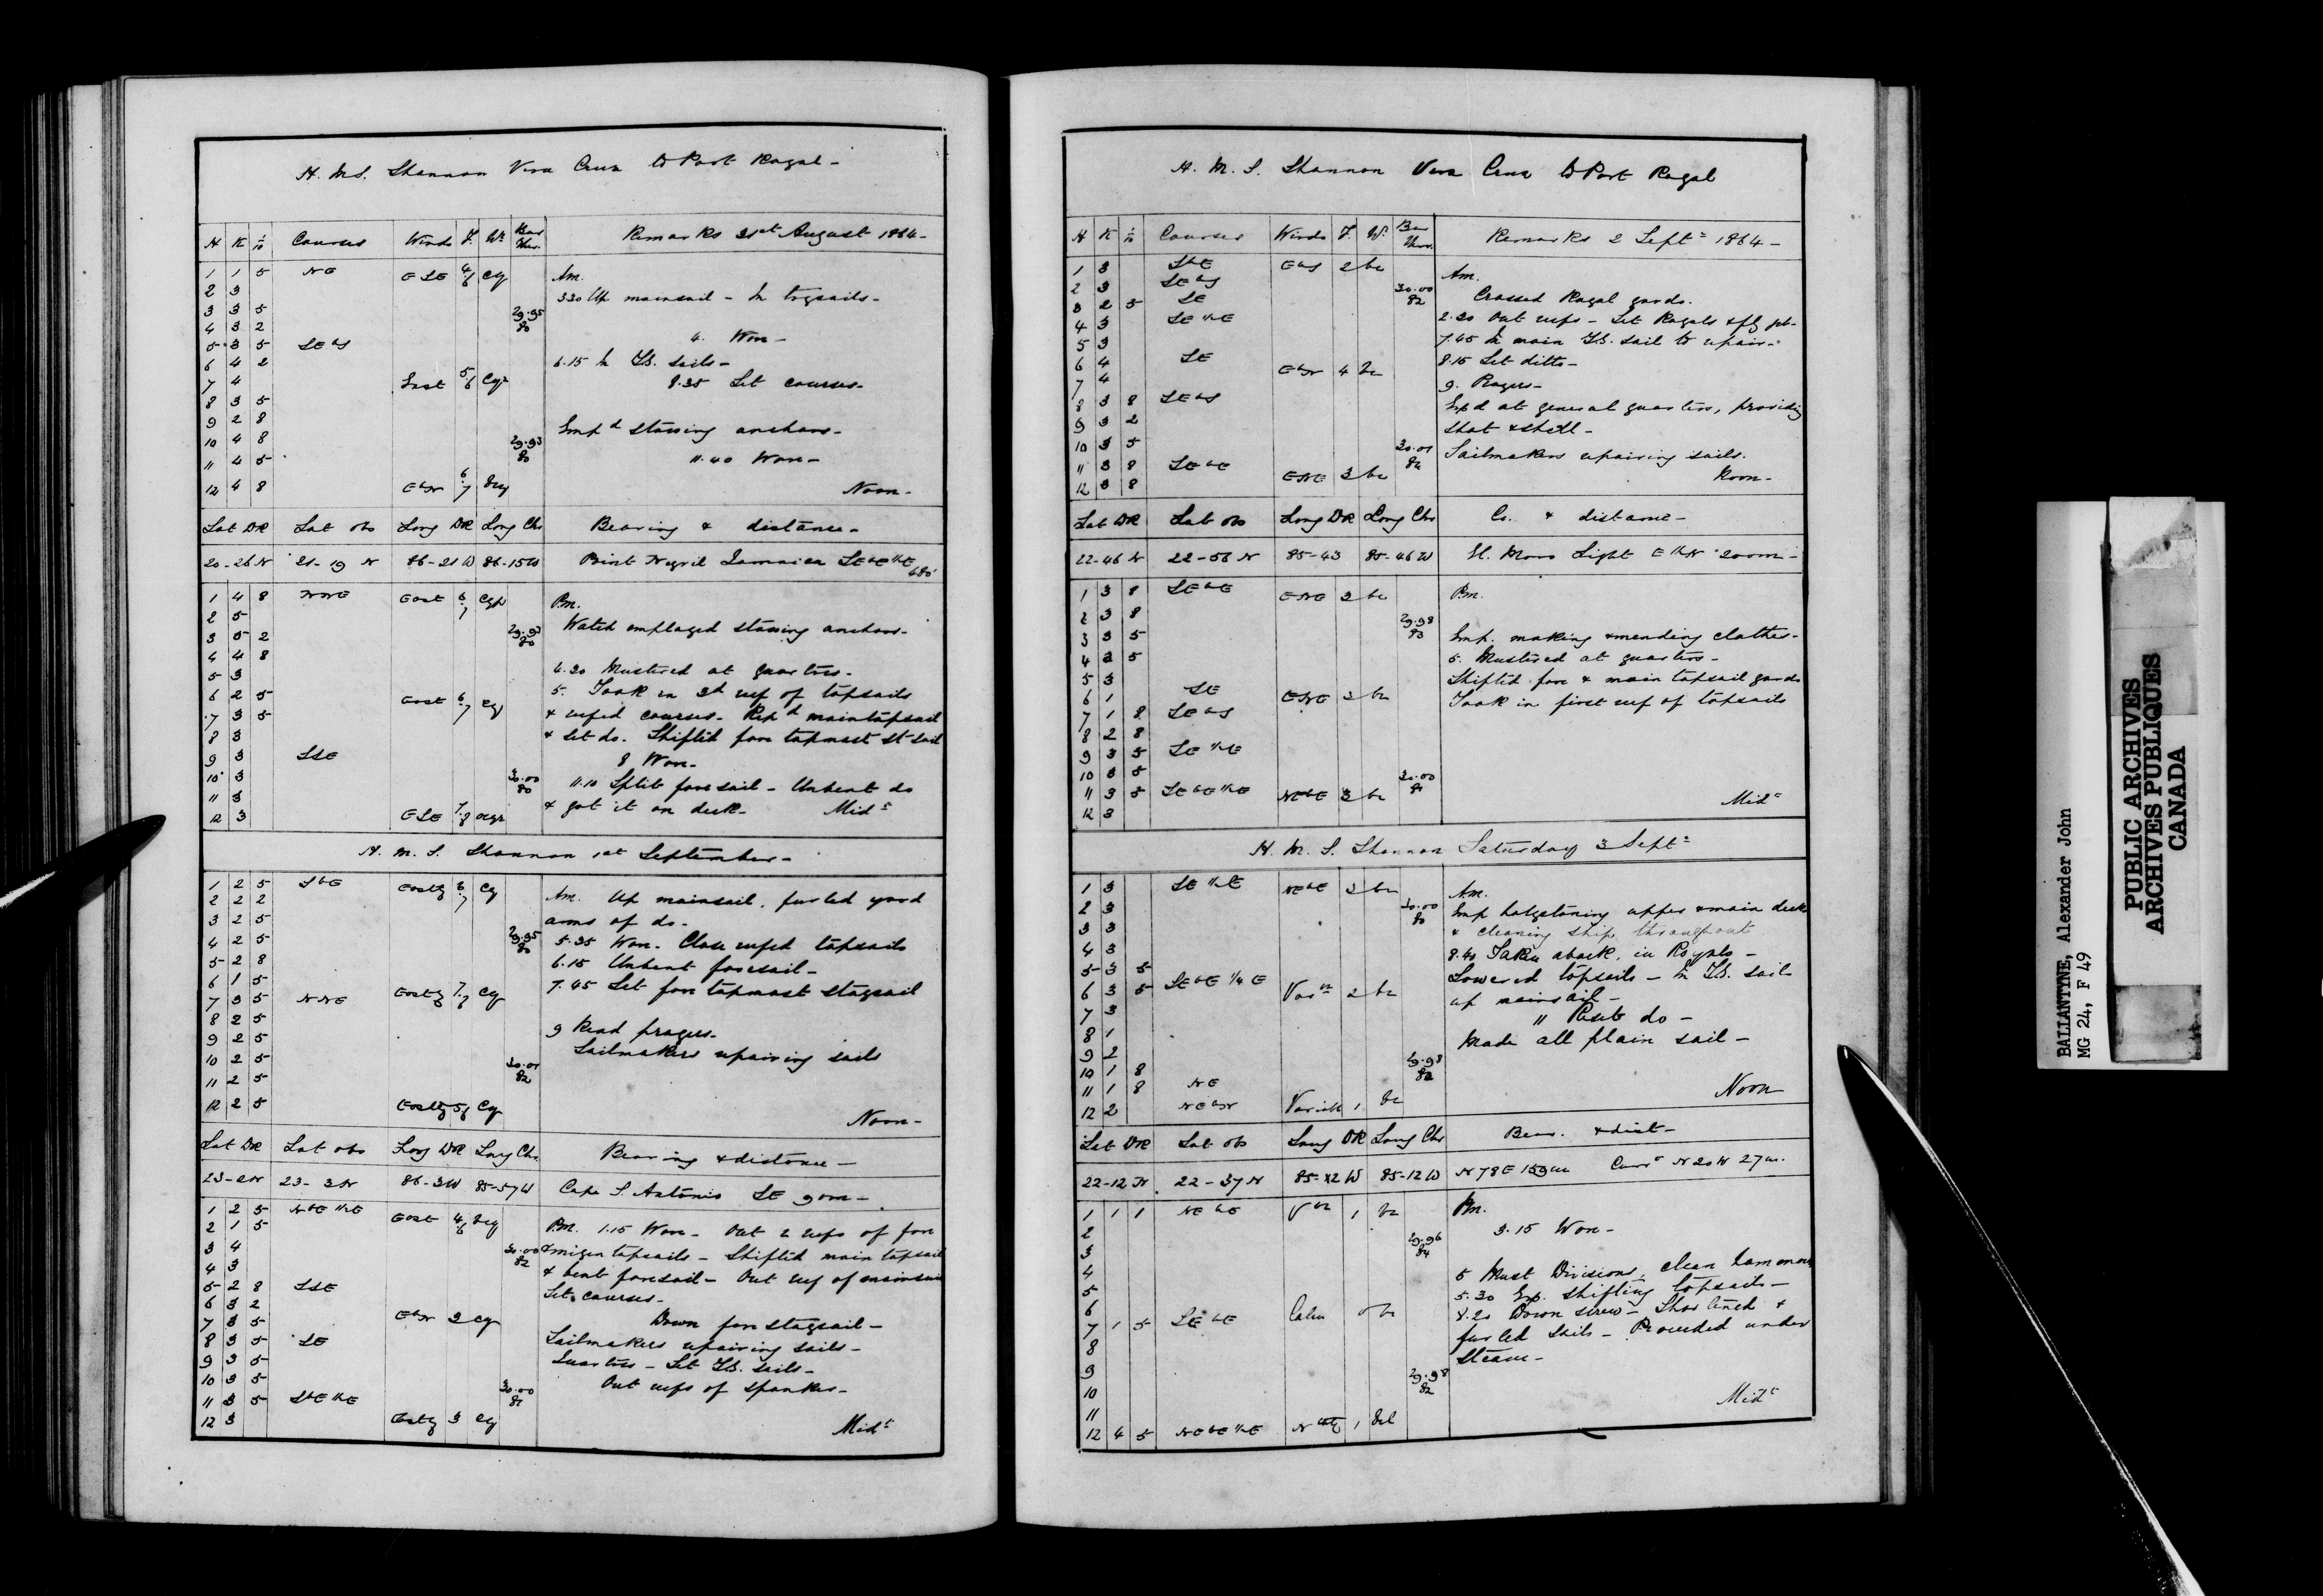 H. M. S. Shannon Vera Cruz to Port Royal -
H K 1/10 Courses Winds F. Wr Bar Ther. Remarks 31st August 1864 -
1 1 5 NE ESE 4/6 cq Am.
2 3 3.30 Up mainsail - In trysails -
3 3 5 29.95
4 3 2 80 4. Wore -
5 3 5 SEbS
6 4 2 6.15 In T.S. sails -
7 4 East 5/6 cqr 8.35 Set courses -
8 3 5
9 2 8 Empd stowing anchors -
10 4 8 29.93 80
11 4 5 11.40 Wore -
12 4 8 EbN 6/7 Noon -
Lat DR Lat obs Long DR Long Chr Bearing & distance -
20-26 N 21-19 N 86-21 W 86-15 W Point Negril Jamaica SEbE 1/2 E 480
1 4 8 NNE East 6/7 cqr Pm.
2 5 Watch employed stowing anchors -
3 5 2 29.93 80
4 4 8 4.30 Mustered at quarters -
5 3 5. Took in 3d reef of topsails
6 2 5 East 6/7 cq & reefed courses. Repd maintopsail
7 3 5 & set do. Shifted fore topmast st sail
8 3 8 Wore -
9 3 SSE
10 3 30.00 80 11.10 Split foresail - Unbent do
11 3 & got it on deck - Midt
12 3 ESE 7/8 ocqr
H. M. S. Shannon 1st September -
1 2 5 SbE Eastly 6/7 cq Am. Up mainsail, furled yard
2 2 2 arms of do -
3 2 5 29.95 80
4 2 5 5.35 Wore. Close reefed topsails
5 2 8 6.15 Unbent foresail -
6 1 5 Eastly cq 7.45 Set fore topmast staysail
7 3 5 NNE
8 2 5 9 Read prayers.
9 2 5 Sailmakers repairing sails
10 2 5 30.01 82
11 2 5
12 2 5 Eastly 5/6 cq Noon -
Lat DR Lat obs Long DR Long Chr. Bearing & distance -
23-2 N 23-3 N 86-3 W 85-57 W Cape S. Antonio SE 90m -
1 2 5 NbE 1/2 E East 4/6 bcq Pm. 1.15 Wore - Out 2 reefs of fore
2 1 5 30.00 82 & mizen topsails - Shifted main topsail
3 4 & bent foresail - Out reef of mainsail
4 3 Set courses -
5 2 8 SSE
6 3 2 EbN 3 cq Down fore staysail -
7 3 5 Sailmakers repairing sails -
8 3 5 SE Quarters - Set T.S. sails -
9 3 5 Out reefs of spanker -
10 3 5 30.00 81
11 3 5 SbE 1/2 E
12 3 Eastly 3 cq Midt
H. M. S. Shannon Vera Cruz to Port Royal
H K 1/10 Courses Winds F. Wr Bar Ther. Remarks 2 Septr 1864 -
1 3 SbE EbS 2 bc Am.
2 3 SEbS 30.00 82 Crossed Royal yards.
3 2 5 SE 2.30 Out reefs - Set Royals & fly jib -
4 3 SE 1/2 E 7.45 In main T.S. sail to repair -
5 3 8.15 Set ditto -
6 4 SE EbN 4 bc 9. Prayers -
7 4
8 3 8 SEbS Empd at general quarters, providing
9 3 2 shot & shell -
10 3 5 30.01 82 Sailmakers repairing sails.
11 3 8 SEbE ENE 3 bc Noon -
12 3 8
Lat DR Lat obs Long DR Long Chr Co. & distance -
22-46 N 22-56 N 85-43 85-46 W El Moro Light E 1/2 N 200m -
1 3 8 SEbE ENE 3 bc Pm.
2 3 8 29.98 83
3 3 5 Emp. making & mending clothes -
4 2 5 5. Mustered at quarters -
5 3 Shifted fore & main topsail yards
6 1 SE ENE 2 bc Took in first reef of topsails
7 1 8 SEbS
8 2 8
9 3 5 SE 1/2 E
10 3 5 30.00 81
11 3 5 SEbE 1/2 E NEbE 3 bc Midt
12 3
H. M. S. Shannon Saturday 3 Septr
1 3 SE 1/2 E NEbE 3 bc Am.
2 3 30.00 80 Emp holystoning upper & main decks
3 3 & cleaning ship throughout
4 3 8.40 Taken aback, in Royals -
5 3 5 Lowered topsails - In T.S. sails
6 3 5 SEbE 1/4 E Varble 2 bc up mainsail -
7 3 " Reset do -
8 1 Made all plain sail -
9 2 29.98 82
10 1 8
11 1 8 NE Noon
12 2 NEbN Variable 1. bc
Lat DR Lat obs Long DR Long Chr Bear. & dist -
22-12 N 22-37 N 85-12 W 85-12 W N 78 E 159m Currt N 20 W 27m.
1 1 1 NEbE Vble 1 bc Pm.
2 29.96 84 3.15 Wore -
3
4 5 Must Divisions, clean hammocks
5 5.30 Emp. shifting topsails -
6 Calm 0 bc 8.20 Down screw - Shortened &
7 1 5 SEbE furled sails - Proceeded under
8 steam -
9 29.98 82
10 Midt
11
12 4 5 NEbE 1/2 E Nthly 1 bcl
BALLANTYNE, Alexander John
MG 24, F 49
PUBLIC ARCHIVES
ARCHIVES PUBLIQUES
CANADA